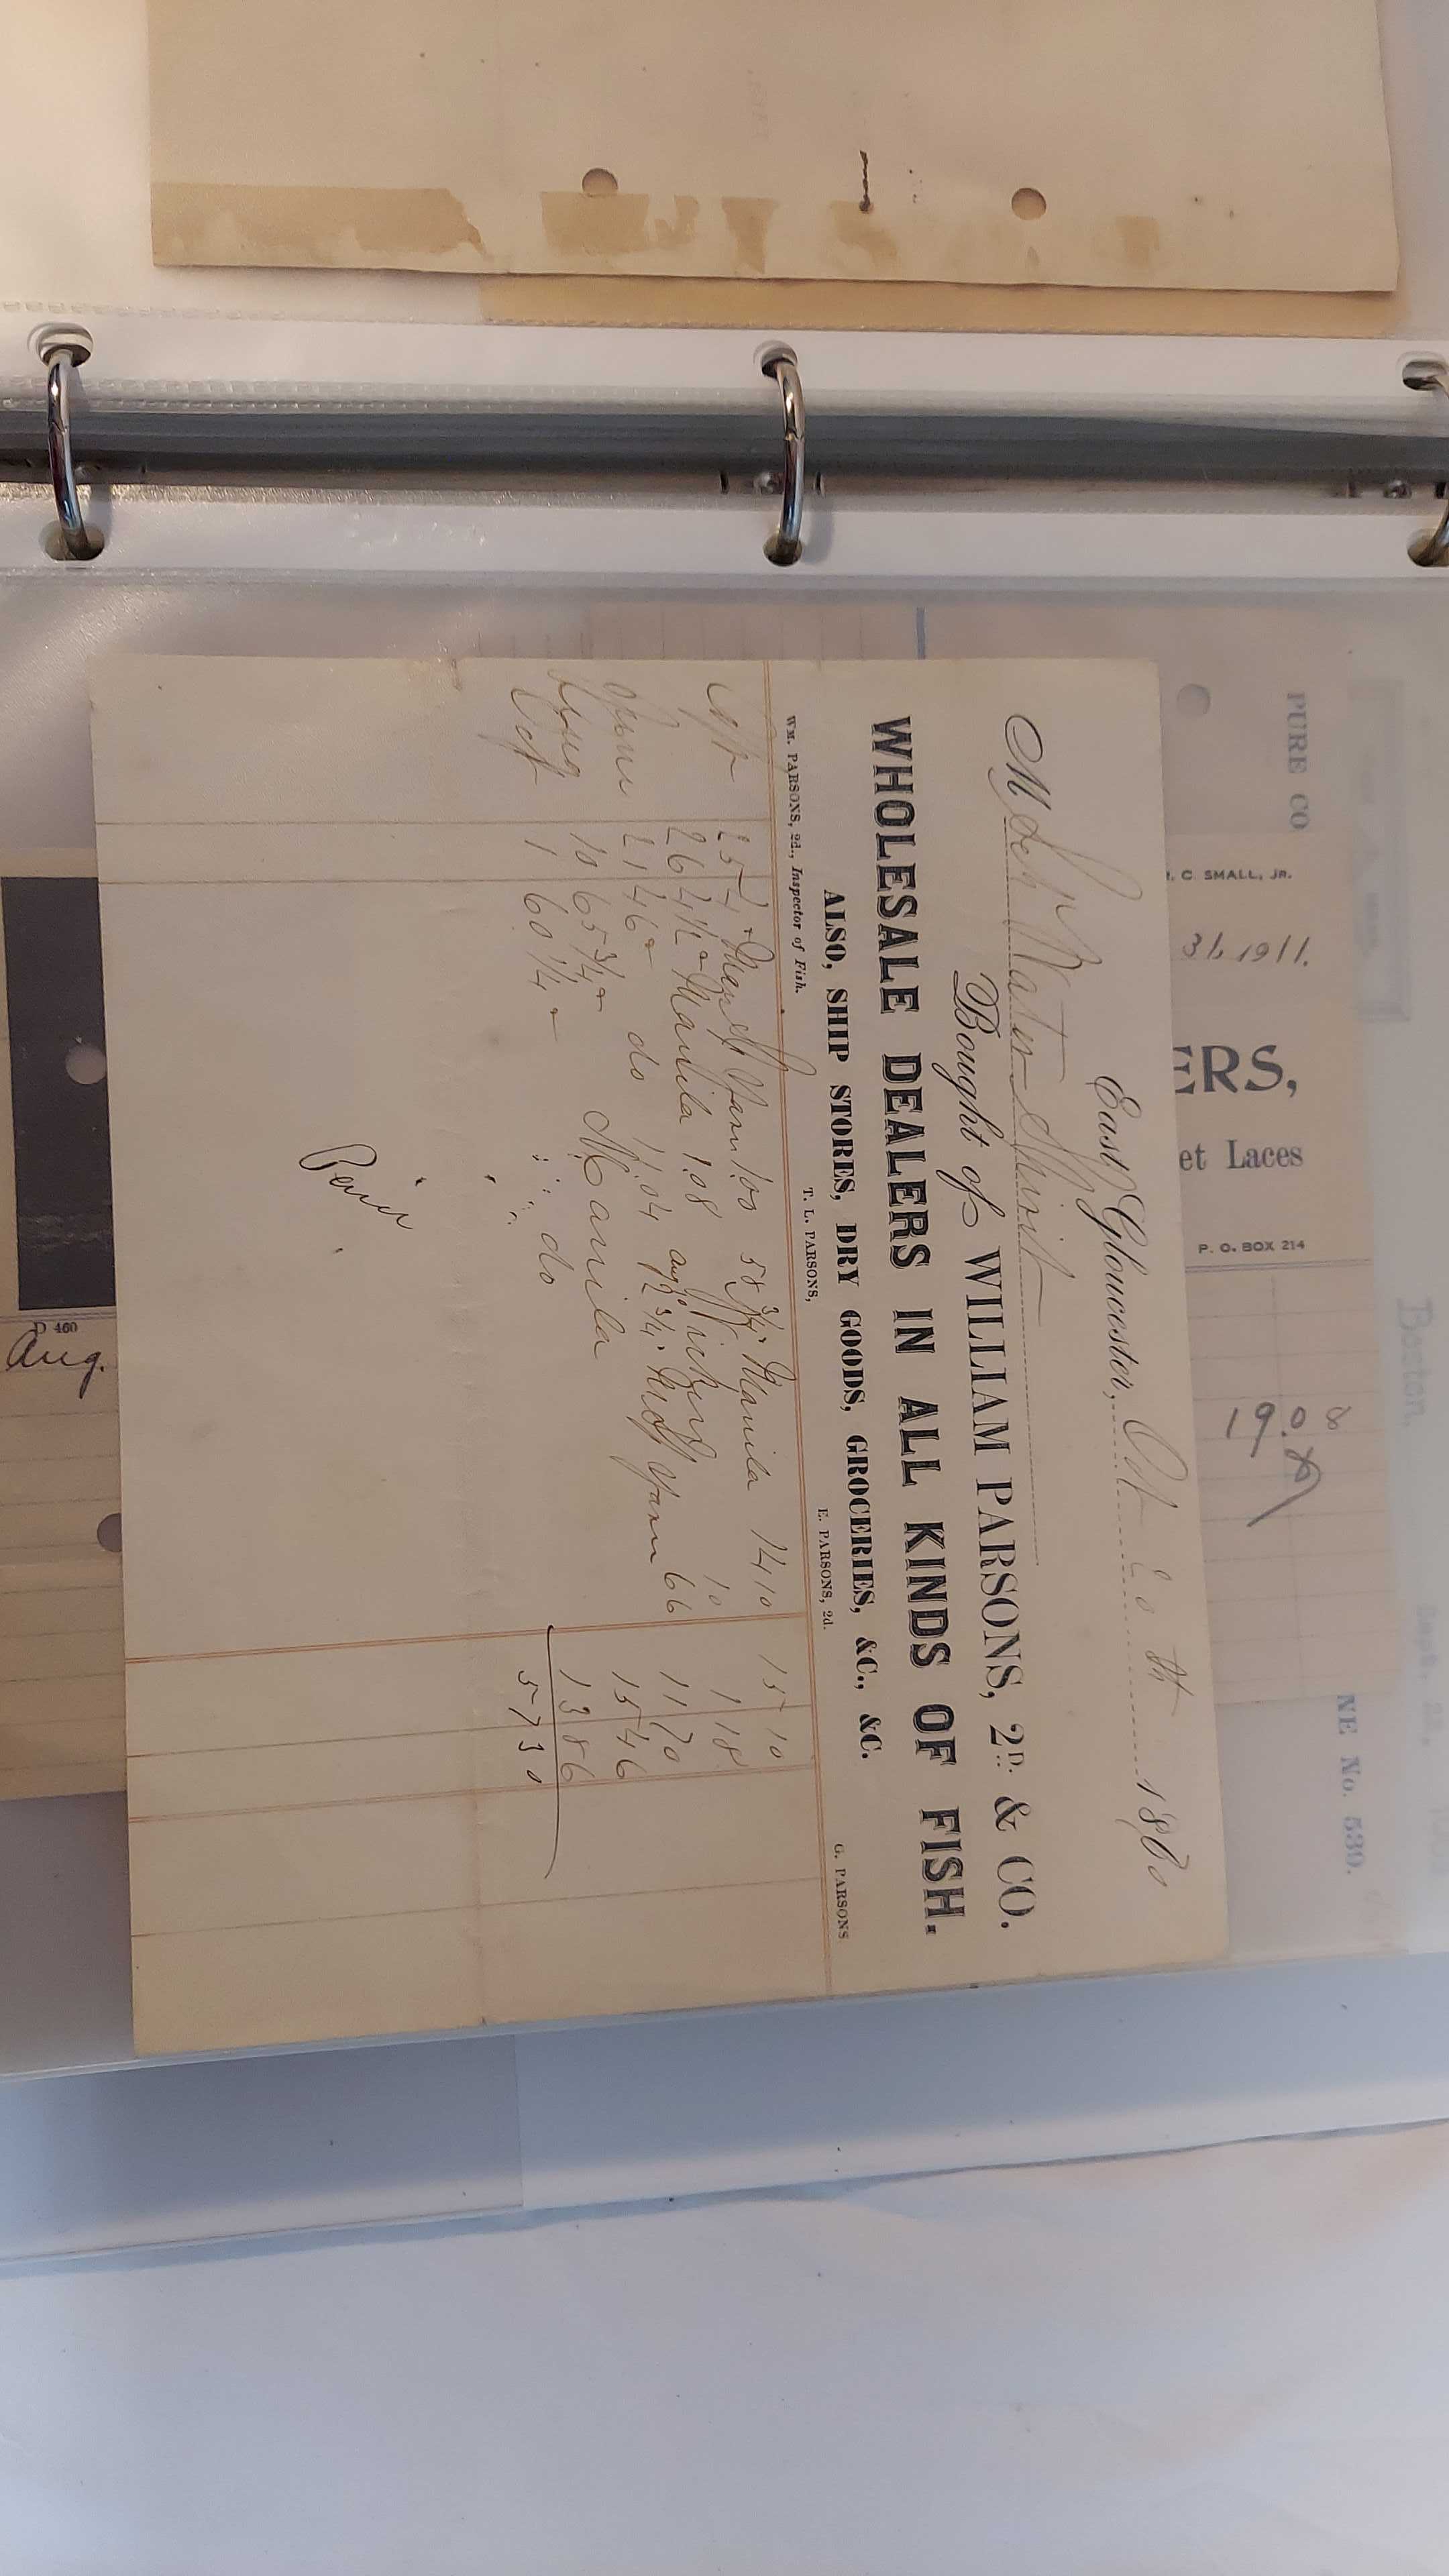 East Gloucester, Oct 20th 1860
M Sch Water Spirit
Bought of WILLIAM PARSONS, 2D. & CO.
WHOLESALE DEALERS IN ALL KINDS OF FISH.
ALSO, SHIP STORES, DRY GOODS, GROCERIES, &C., &C.
WM. PARSONS, 2d., Inspector of Fish. T. L. PARSONS, E. PARSONS, 2d. G. PARSONS
25 Yarn 1.00 58 3/4 Manila 14 10 15 10
26 Manila 1.08 10 1 18
June 21 46 do 11.04 2 3/4 Yarn 66 11 70
Aug 10 65 3/4 Manila 15 46
Oct 1 60 1/4 " " do 13 86
57 30
Paid
PURE CO
H. C. SMALL, JR.
1911.
ERS,
et Laces
P. O. BOX 214
19.08
NE No. 530.
Boston,
D 460
Aug.